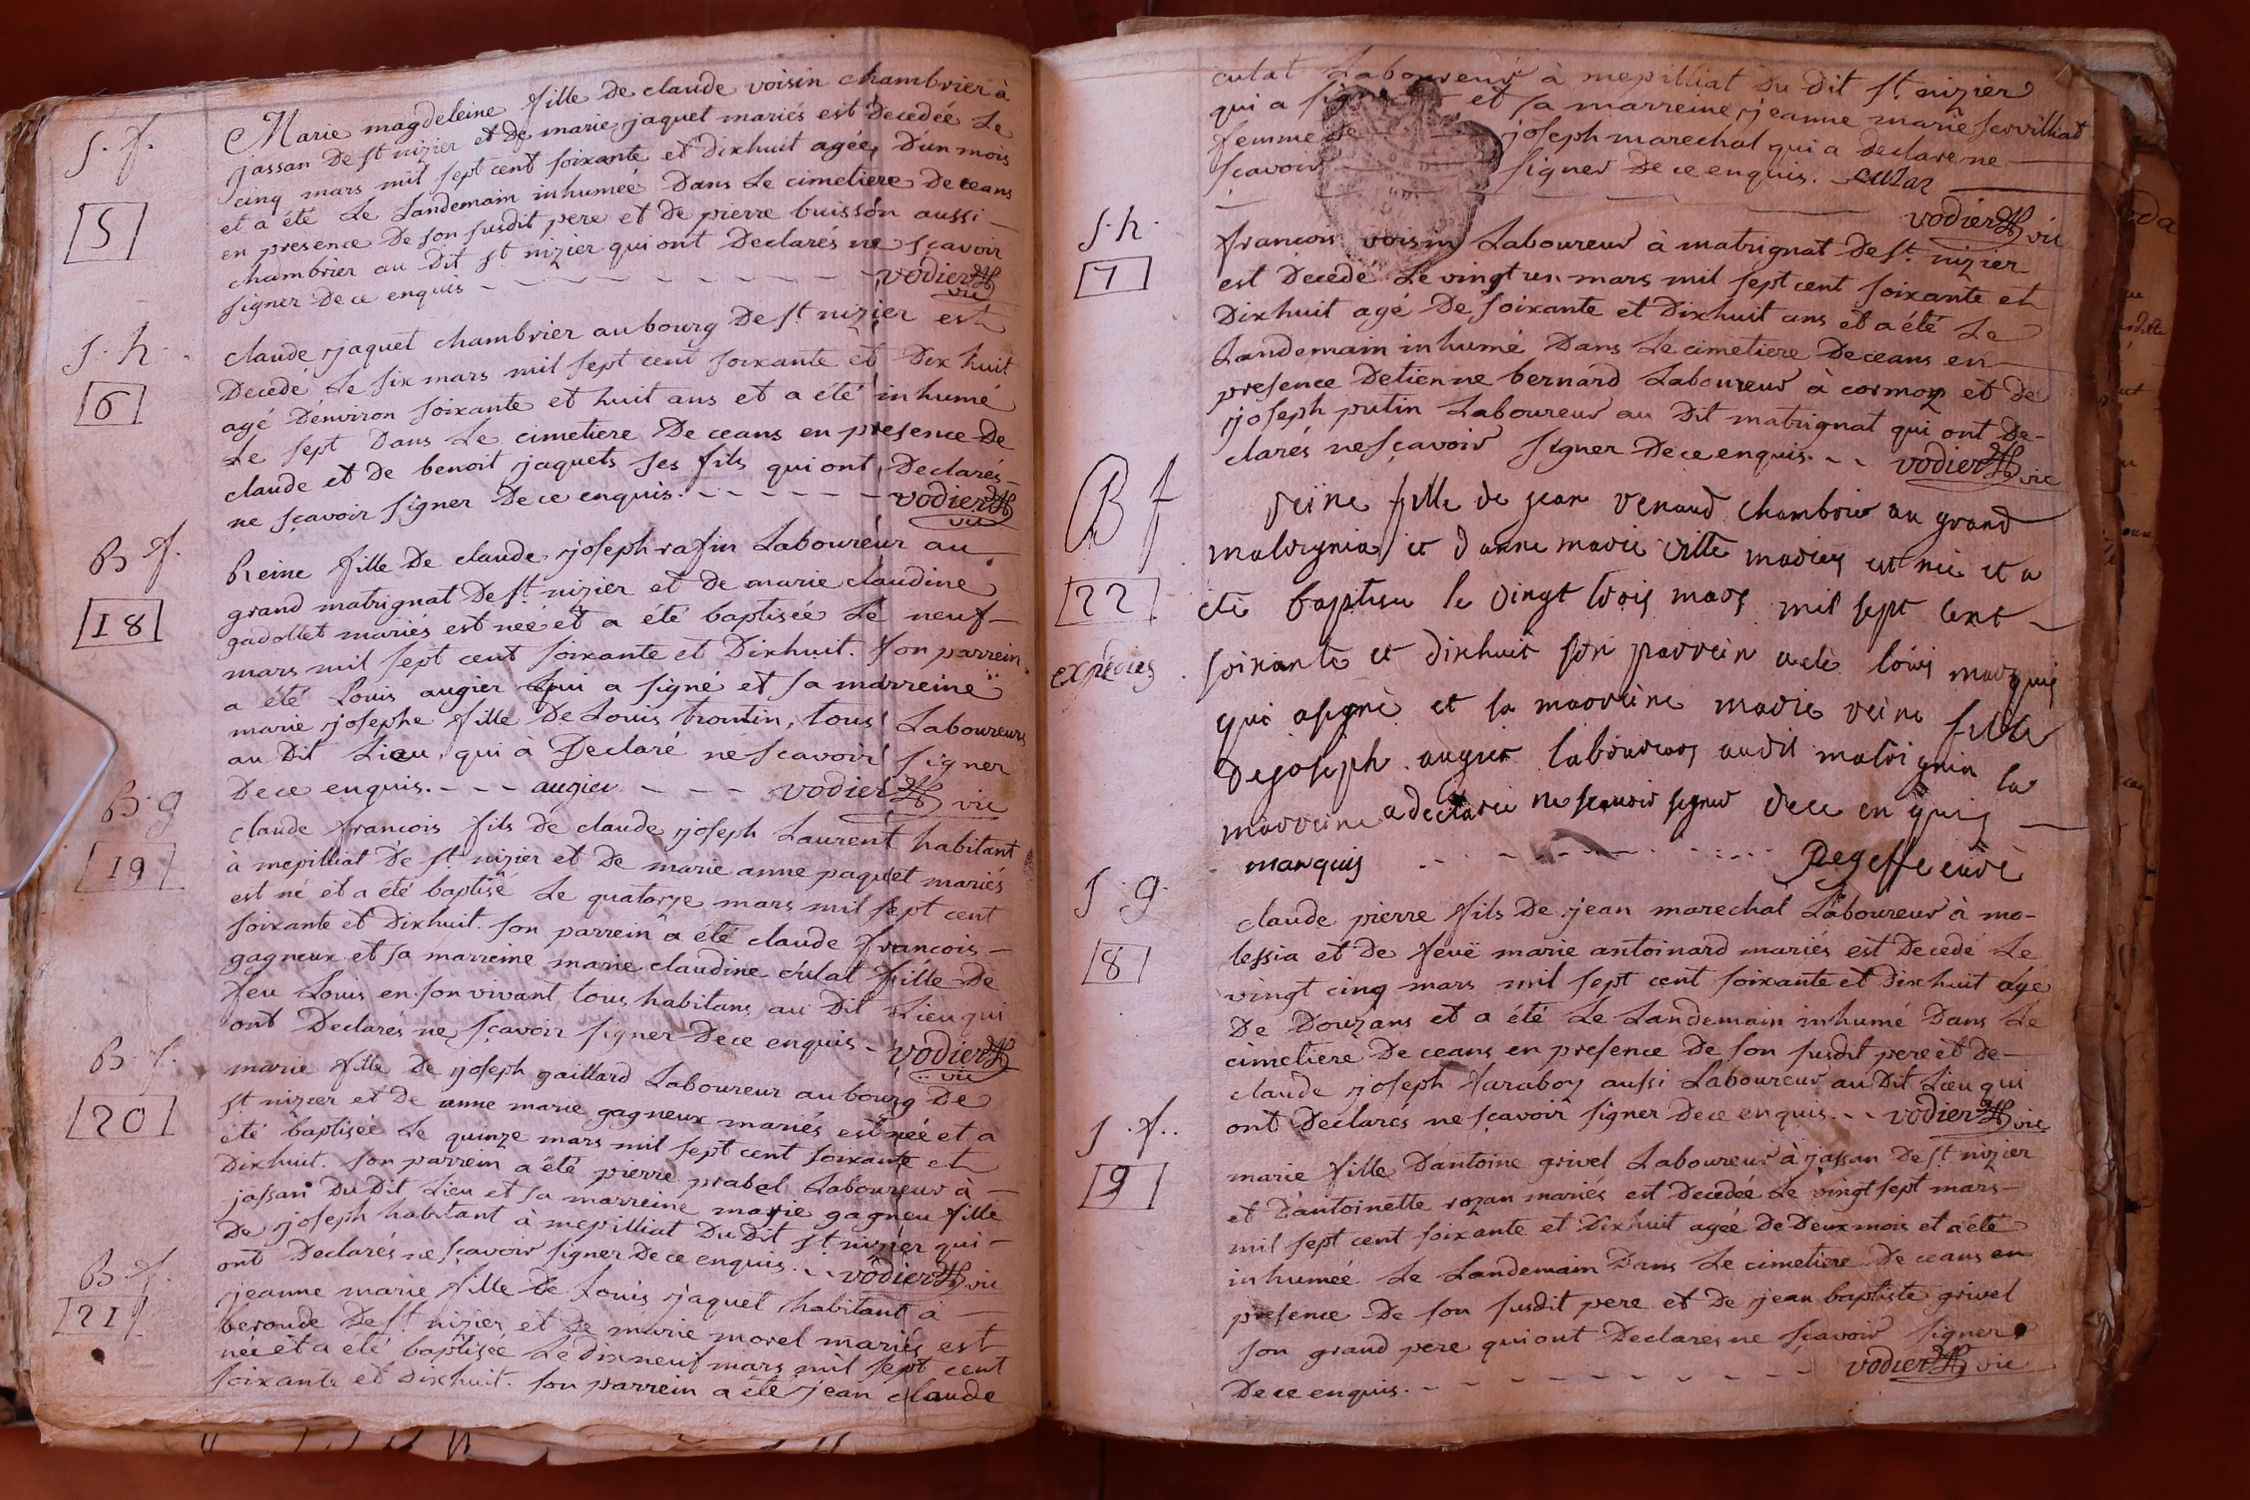 S. f.
5
Marie magdeleine fille de claude voisin chambrier à
jassan De st nizier et de marie jaquet mariés est decedée Le
cinq mars mil sept cent soixante et dixhuit agée D'un mois
et a été Le Landemain inhumeé Dans Le cimetiere De ceans
en presence De son susdit pere et de pierre buisson aussi
chambrier au Dit st nizier qui ont Declarés ne sçavoir
signer De ce enquis - - - - - - - vodier vic
S. h.
6
claude jaquet chambrier au bourg De st nizier est
Decedé Le six mars mil sept cent soixante et Dix huit
agé D'environ soixante et huit ans et a été inhumé
Le sept Dans Le cimetiere De ceans en presence De
claude et de benoit jaquets ses fils qui ont Declarés
ne sçavoir signer De ce enquis. - - - - - - vodier vic
B f.
18
Reine fille De claude joseph rafin Laboureur au
grand matrignat De st nizier et de marie claudine
gadollet mariés est neé et a été baptisée Le neuf
mars mil sept cent soixante et Dixhuit. son parrein
a été Louis augier qui a signé et sa marreine
marie josephe fille De Louis trontin, tous Laboureurs
au Dit Lieu qui à Declaré ne sçavoir signer
De ce enquis. - - - augier - - - vodier vic
B. g
19
claude francois fils de claude joseph Laurent habitant
à mepilliat De st nizier et de marie anne paquet mariés
est né et a été baptisé Le quatorze mars mil sept cent
soixante et Dixhuit. son parrein a été claude francois
gagneux et sa marreine marie claudine culat fille De
feu Louis en son vivant tous habitans au Dit Lieu qui
ont Declarés ne sçavoir signer De ce enquis - vodier vic
B. f.
20
marie fille De joseph gaillard Laboureur au bourg De
st nizier et De anne marie gagneux mariés est neé et a
été baptisée Le quinze mars mil sept cent soixante et
Dixhuit. son parrein a été pierre prabel Laboureur à
jassan Du Dit Lieu et sa marreine marie gagneu fille
De joseph habitant à mepilliat Du Dit st nizier qui
ont Declarés ne sçavoir signer De ce enquis. - - vodier vic
B. f.
21
jeanne marie fille De Louis jaquet habitant à
beroude De st nizier et De marie morel mariés est
neé et a été baptisée Le dixneuf mars mil sept cent
soixante et dixhuit. son parrein a été jean claude
culat Laboureur à mepilliat Du Dit st. nizier
qui a signé et sa marreine jeanne marie
femme De joseph marechal qui a declaré ne
sçavoir signer De ce enquis. culat
vodier vic
S. h.
7
francois voisin Laboureur à matrignat De st. nizier
est Decedé Le vingt un mars mil sept cent soixante et
Dixhuit agé De soixante et Dixhuit ans et a été Le
Landemain inhumé Dans Le cimetiere De ceans en
presence Detienne bernard Laboureur à cormoz et de
joseph putin Laboureur au Dit matrignat qui ont De-
clarés ne sçavoir signer De ce enquis. - - vodier vic
B f
22
expediez
reine fille de jean renaud chambrier au grand
matrignia et d'anne marie mariez est neé et a
eté baptisee le vingt trois mars mil sept cent
soixante et dixhuit son parrein a eté loüis marquis
qui a signé et sa marreine marie reine fille
de joseph augier laboureurs au dit matrignia la
marreine a declareé ne scavoir signer de ce enquis
marquis - - - - - - Degeffe curé
S. g.
8
claude pierre fils De jean marechal Laboureur à mo-
lessia et de feuë marie antoinard mariés est Decedé Le
vingt cinq mars mil sept cent soixante et dixhuit agé
De Douz ans et a été Le Landemain inhumé Dans Le
cimetiere De ceans en presence De son susdit pere et De
claude joseph faraboz aussi Laboureur au Dit Lieu qui
ont Declarés ne sçavoir signer De ce enquis. - - vodier vic
S. f..
9
marie fille D'antoine grivel Laboureur à jassan De st. nizier
et D'antoinette rozan mariés est Decedeé Le vingt sept mars
mil sept cent soixante et Dixhuit ageé De Deux mois et a été
inhumeé Le Landemain Dans Le cimetiere De ceans en
presence De son susdit pere et De jean baptiste grivel
son grand pere qui ont Declares ne sçavoir signer
De ce enquis. - - - - - - - - vodier vic